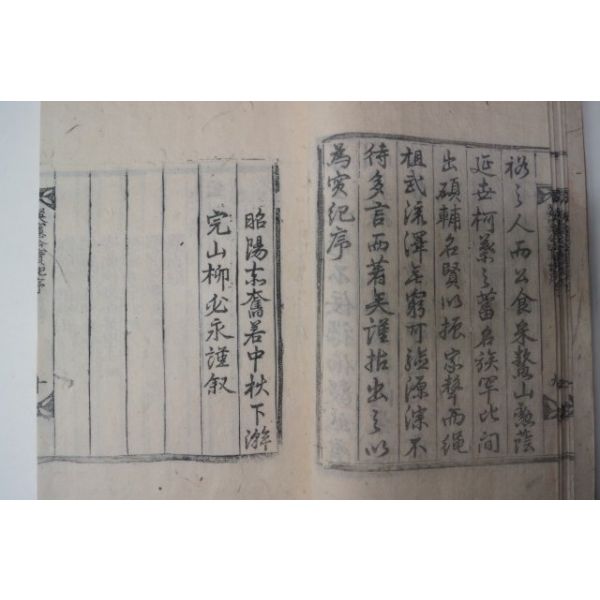 裕之人而公食采鰲山勳蔭
延世柯葉之蕃名族罕比間
出碩輔名賢以振家聲而繩
祖武流澤無窮可驗源深不
待多言而著矣謹拈出之以
為寅紀序
昭陽赤奮若中秋下澣
完山柳必永謹叙